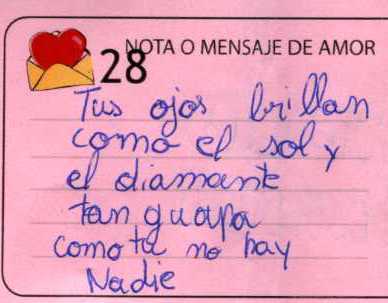 28 NOTA O MENSAJE DE AMOR
Tus ojos brillan
como el sol y
el diamante
tan guapa
como tu no hay
Nadie